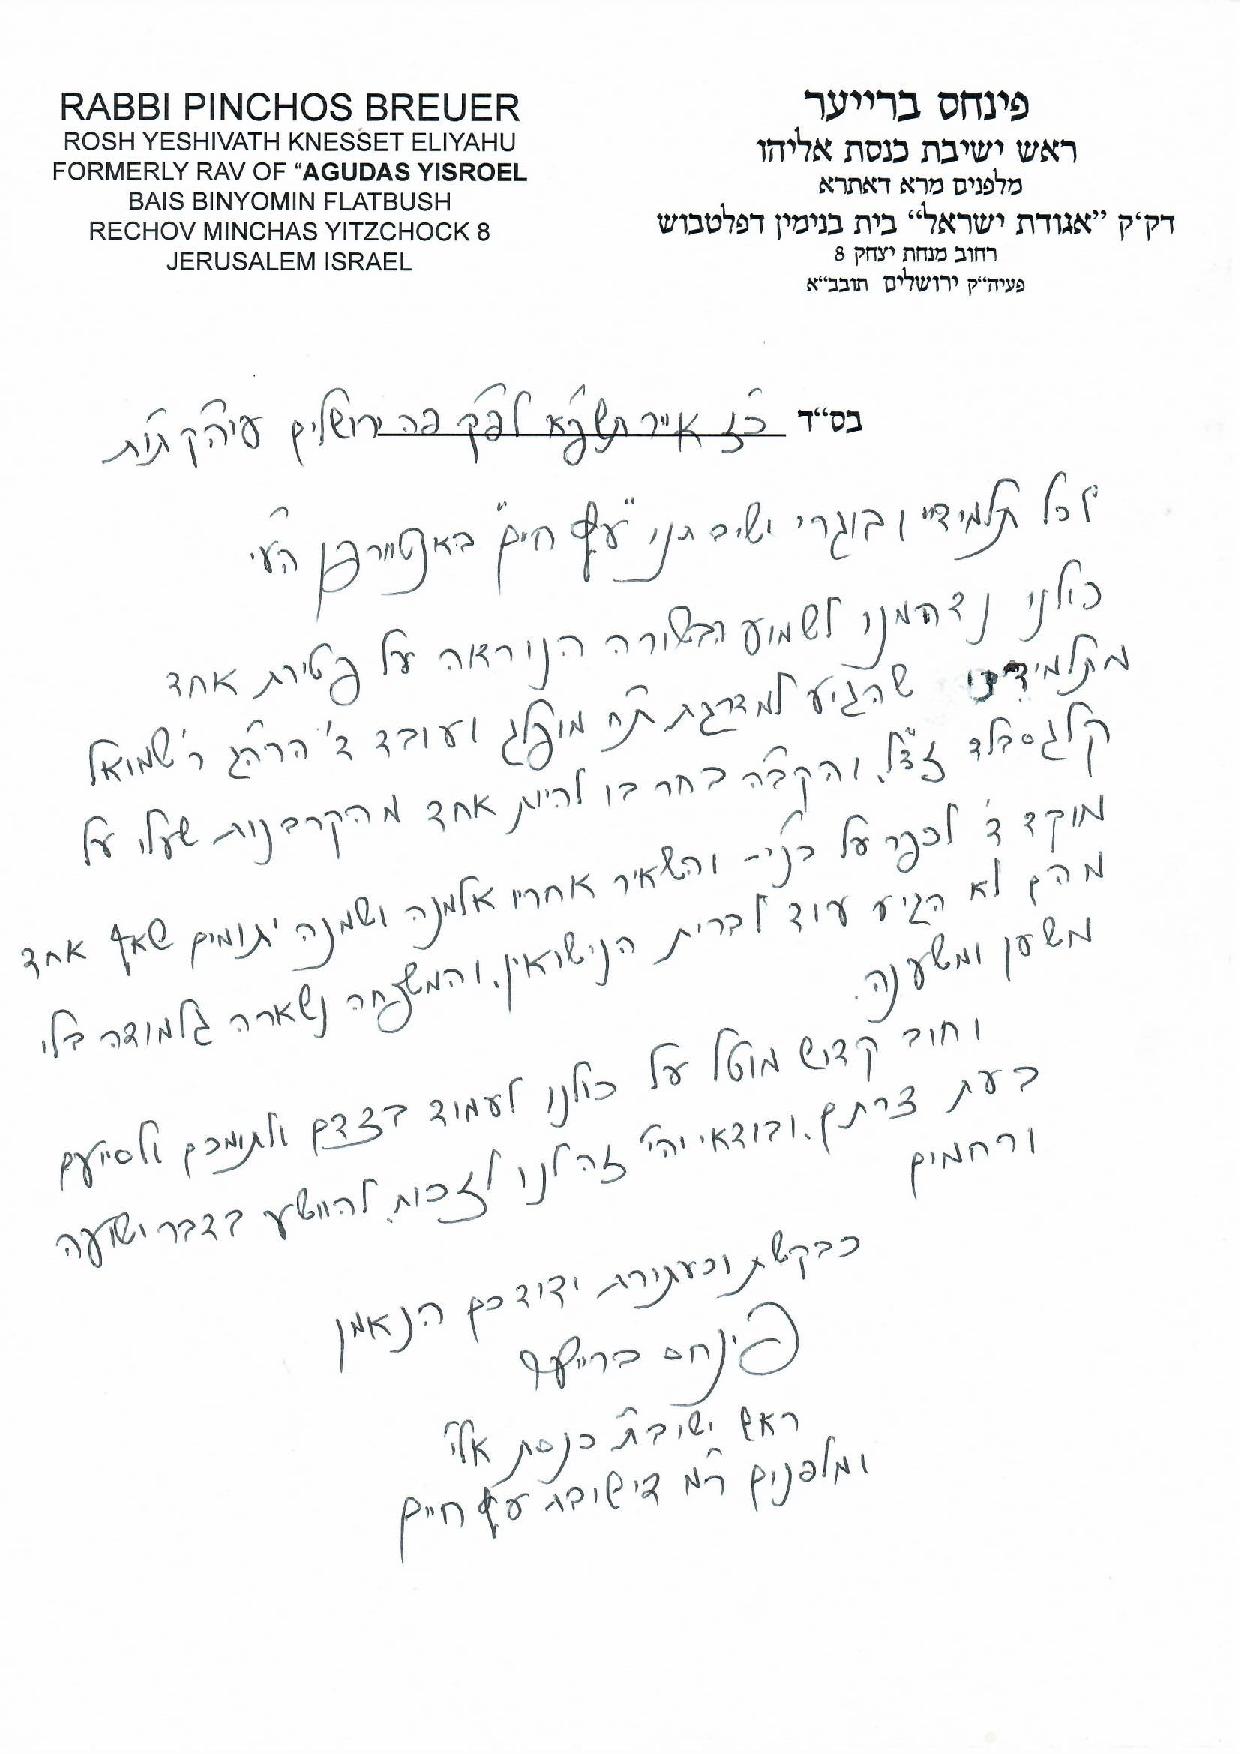 RABBI PINCHOS BREUER
ROSH YESHIVATH KNESSET ELIYAHU
FORMERLY RAV OF “AGUDAS YISROEL
BAIS BINYOMIN FLATBUSH
RECHOV MINCHAS YITZCHOCK 8
JERUSALEM ISRAEL
פינחס ברייער
ראש ישיבת כנסת אליהו
מלפנים מרא דאתרא
דק״ק ״אגודת ישראל״ בית בנימין דפלטבוש
רחוב מנחת יצחק 8
פעיה״ק ירושלים תובב״א
בס״ד כ״ז אייר תשפ״א לפ״ק פה ירושלים עיה״ק ת״ו
לכל תלמידיי ובוגרי ישיבתנו "עץ חיים" באנטווערפן הע״י
כולנו נדהמנו לשמוע הבשורה הנוראה על פטירת אחד
מתלמידינו שהגיע למדרגת ת״ח מופלג ועובד ד' הרה״ג ר' שמואל
קלגסבלד זצ״ל, והקב״ה בחר בו להיות אחד מהקרבנות שעלו על
מוקד ד' לכפר על בנ״י - והשאיר אחריו אלמנה ושמנה יתומים שאף אחד
מהם לא הגיע עוד לברית הנישואין, והמשפחה נשארה גלמודה בלי
משען ומשענה.
וחוב קדוש מוטל על כולנו לעמוד בצדם ולתומכם ולסייעם
בעת צרתם, ובודאי יהי' זה לנו לזכות להוושע בדבר ישועה
ורחמים
כבקשת וכעתירת ידידכם הנאמן
פינחס ברייער
ראש ישיבת כנסת אלי'
ומלפנים ר״מ בישיבת עץ חיים